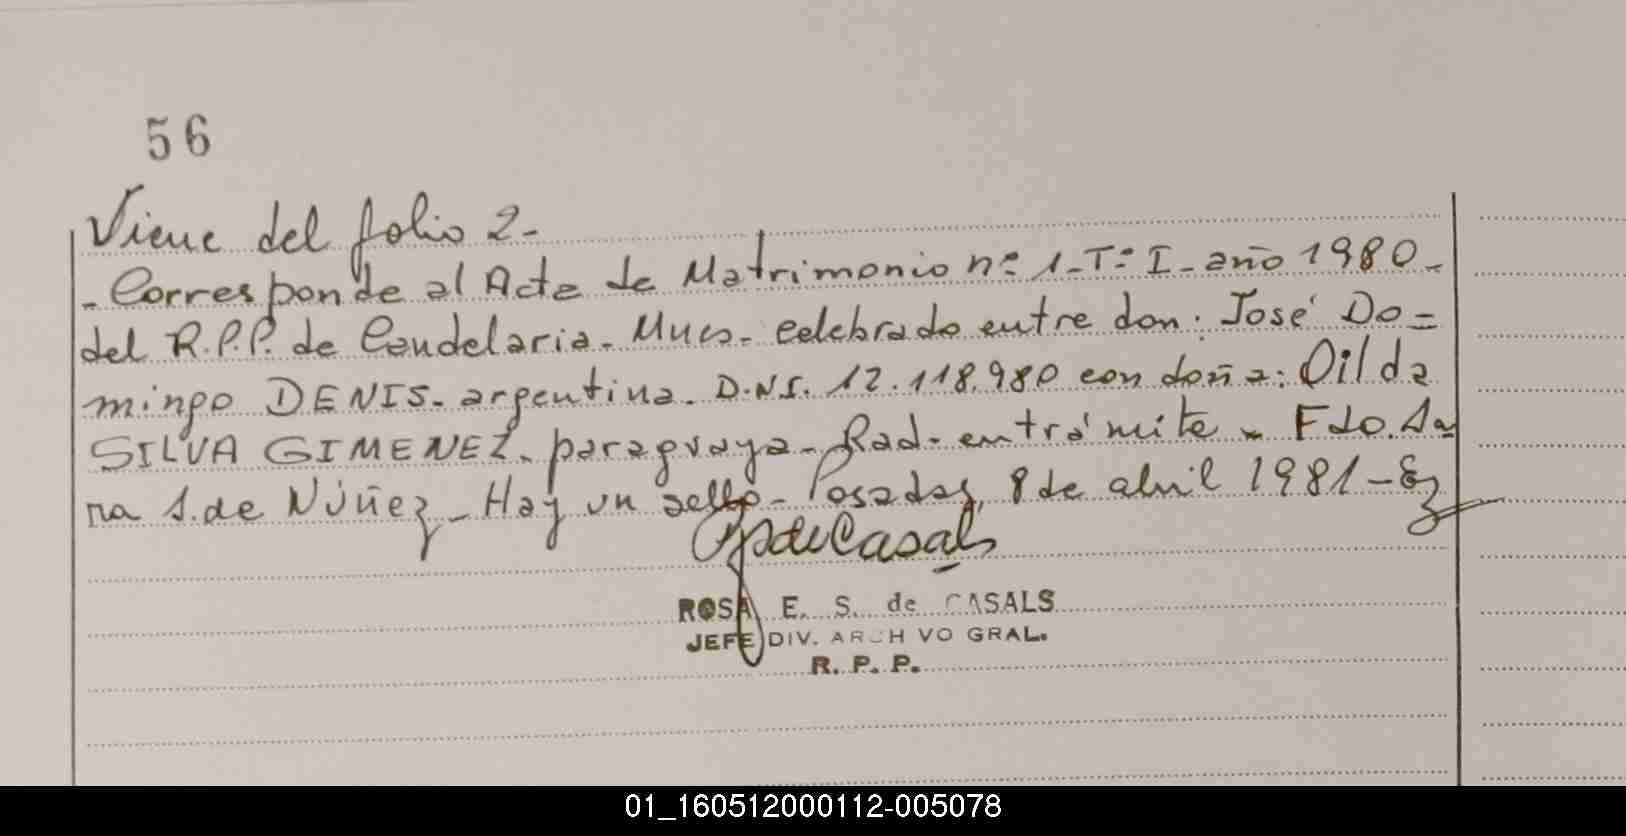 56
Viene del folio 2-
- Corresponde al Acta de Matrimonio nº 1-Tº I- año 1980-
del R.P.P. de Candelaria- Mnes- celebrado entre don: José Do=
mingo DENIS- argentina. D.N.I. 12.118.980 con doña: Oilda
SILVA GIMENEZ- paraguaya- Rad- en trámite - Fdo.
na S. de Núñez- Hay un sello- Posadas, 8 de abril 1981-
de Casals
ROSA E. S. de CASALS
JEFE DIV. ARCH VO GRAL.
R. P. P.
01_160512000112-005078